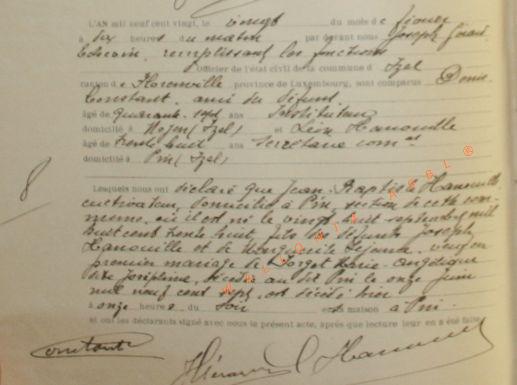 L'AN mil neuf cent vingt, le vingt du mois de février
à dix heures du matin par devant nous Joseph
Echevin, remplissant les fonctions
Officier de l'état civil de la commune d' Izel
canton de Florenville province de Luxembourg, sont comparus Denis
Constant, ami du défunt
âgé de quarante sept ans Instituteur
domicilié à Moyen (Izel) et Léon Hanouille
âgé de trente huit ans Secrétaire com.al
domicilié à Pin (Izel)
8
Lesquels nous ont déclaré que Jean-Baptiste Hanouille
cultivateur, domicilié à Pin, section de cette com-
mune, où il est né le vingt huit septembre mil
huit cent trente huit, fils des défunts Joseph
Hanouille et de Marguerite Lejeune, veuf en
premier mariage de Dorget Marie-Angélique
dite Joséphine, décédée au dit Pin le onze juin
mil neuf cent sept, est décédé hier
à onze heures du soir en sa maison à Pin.
et ont les déclarants signé avec nous le présent acte, après que lecture leur en a été faite.
Constant
Hanouille